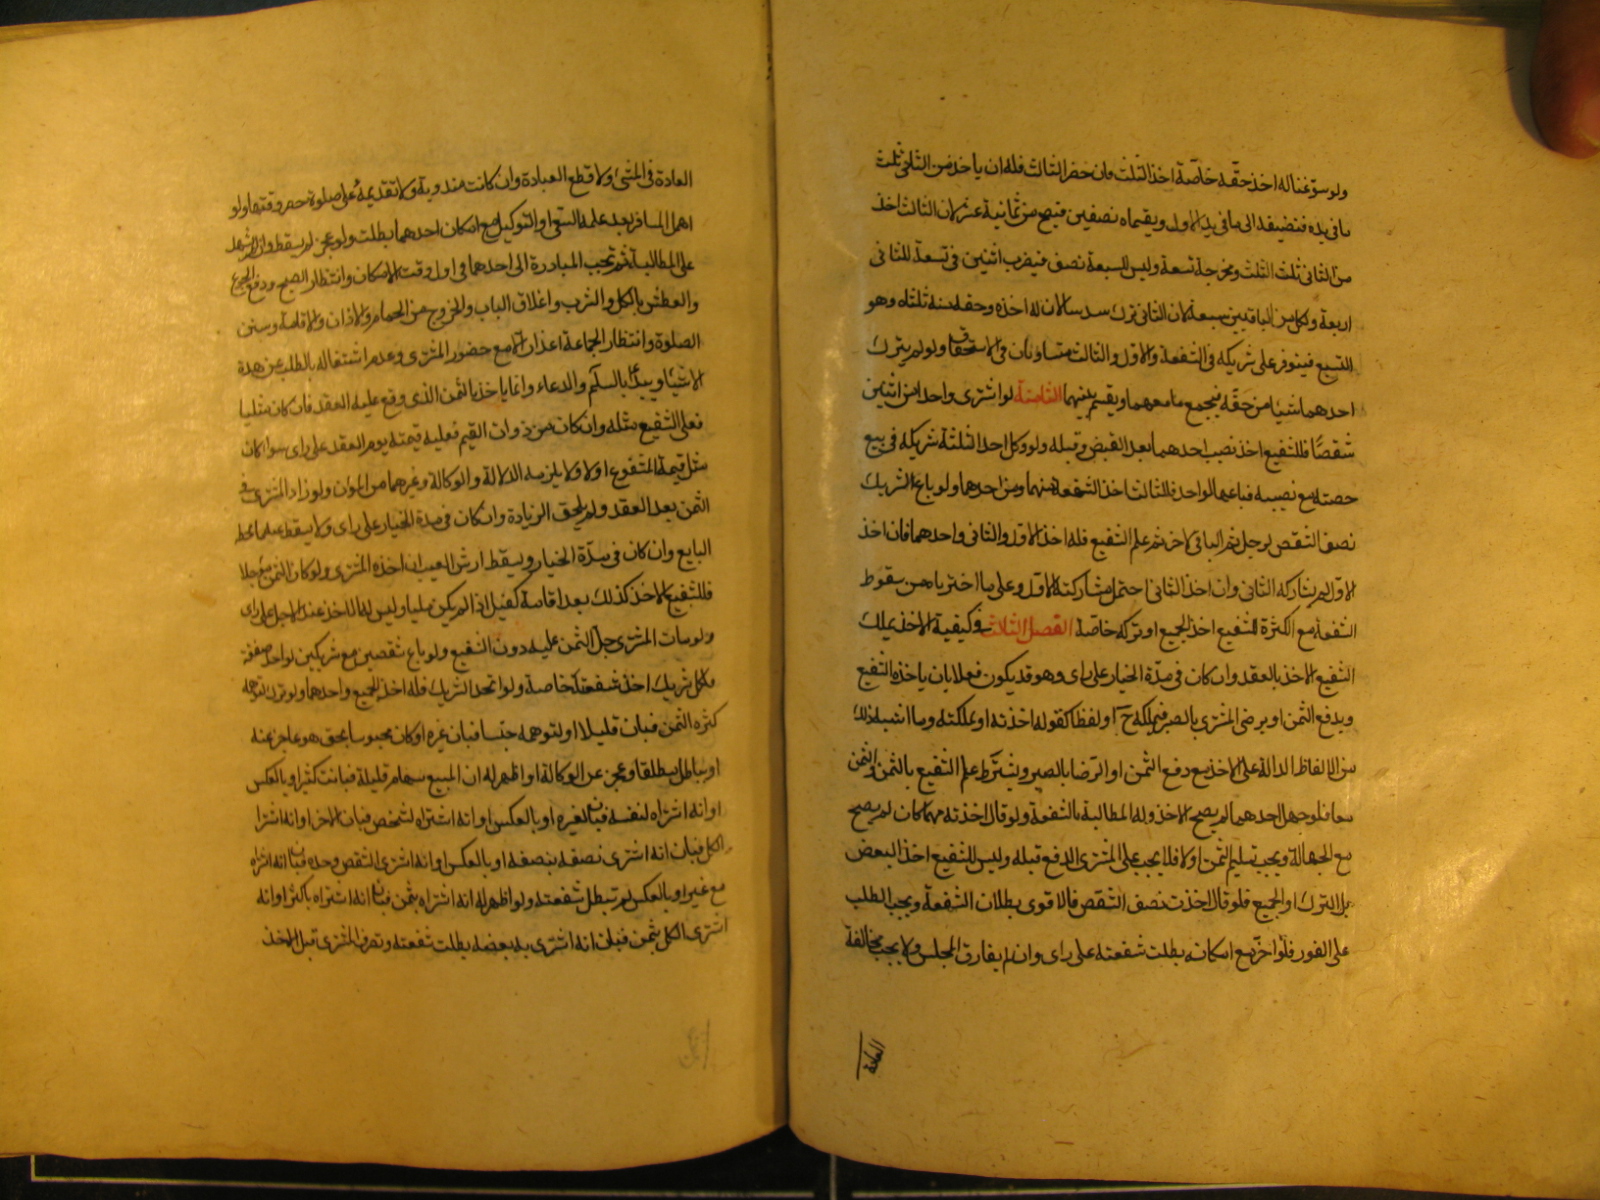 ولو سوغناله اخذ حقه خاصة اخذ الثلث فان حضر الثالث فله ان ياخذ من الثانى ثلث
ما فى يده فتضيفه الى ما فى يد الاول ويقتسماه نصفين فتصح من ثمانية عشر لان الثالث اخذ
من الثانى ثلث الثلث ومخرجة تسعة وليس للسبعة نصف فيضرب اثنين فى تسعة للثانى
اربعة ولكل من الباقيين سبعة لان الثانى ترك سدسا لان له اخذه وحقه منه ثلثاه وهو
التسع فيتوفر على شريكه فى الشفعة والاول والثالث متساويان فى الاستحقاق ولو لم يترك
احدهما شيئا من حقه فيجمع ما معهما ويقسم بينهما الثامنة لو اشترى واحد من اثنين
شقصا فللشفيع اخذ نصيب احدهما بعد القبض وقبله ولو وكل احد الثلثة شريكه فى بيع
حصته مع نصيبه فباعهما لواحد فللثالث اخذ الشفعة منهما ومن احدهما ولو باع الشريك
نصف الشقص لرجل ثم الباقى لاخر ثم علم الشفيع فله اخذ الاول والثانى واحدهما فان اخذ
الاول لم يشاركه الثانى وان اخذ الثانى احتمل مشاركته الاول وعلى ما اخترناه من سقوط
الشفعة مع الكثرة للشفيع اخذ الجميع او تركه خاصة الفصل الثالث فى كيفية الاخذ يملك
الشفيع الاخذ بالعقد وان كان فى مدة الخيار على راى وهو قد يكون فعلا بان ياخذه الشفيع
ويدفع الثمن او يرضى المشترى بالصبر فيملكه ح او لفظا كقوله اخذته او تملكته وما اشبه ذلك
من الالفاظ الدالة على الاخذ مع دفع الثمن او الرضا بالصبر ويشترط علم الشفيع بالثمن والثمن
معا فلو جهل احدهما لم يصح الاخذ وله المطالبة بالشفعة ولو قال اخذته مهما كان لم يصح
مع الجهالة ويجب تسليم الثمن اولا فلا يجب على المشترى الدفع قبله وليس للشفيع اخذ البعض
بل الترك او الجميع فلو قال اخذت نصف الشقص فالاقوى بطلان الشفعة ويجب الطلب
على الفور فلو اخر مع امكانه بطلت شفعته على راى وان لم يفارق المجلس ولا يجب مخالفة
العادة
العادة فى المشى ولا قطع العبادة وان كانت مندوبة ولا تقديمه على صلوة حضر وقتها ولو
اهمل المسافر بعد علمه السعى او التوكيل مع امكان احدهما بطلت ولو عجز لم يسقط وان لم يشهد
على المطالبة ثم تجب المبادرة الى احدهما فى اول وقت الامكان وانتظار الصبح ودفع الجوع
والعطش بالاكل والشرب واغلاق الباب والخروج من الحمام والاذان والاقامة وسنن
الصلوة وانتظار الجماعة اعذار الا مع حضور المشترى وعدم اشتغاله بالطلب عن هذه
الاشياء ويبدأ بالسلم والدعاء وانما ياخذ بالثمن الذى وقع عليه العقد فان كان مثليا
فعلى الشفيع مثله وان كان من ذوات القيم فعليه قيمته يوم العقد على راى سوا كان
مثل قيمة المشفوع اولا ولا يلزمه الدلالة والوكالة وغيرهما من المؤن ولو زاد المشترى فى
الثمن بعد العقد ولم يلحق الزيادة وان كان فى مدة الخيار على راى ولا يسقط عنه ما يحط
البايع وان كان فى مدة الخيار ويسقط ارش العيب ان اخذه المشترى ولو كان الثمن مؤجلا
فللشفيع الاخذ كذلك بعد اقامة كفيل اذا لم يكن مليا وليس له الاخذ عند الاجل على راى
ولو مات المشترى حل الثمن عليه دون الشفيع ولو باع شقصين مع شريكين لواحد صفقة
فلكل شريك اخذ شفعته خاصة ولو اتحد الشريك فله اخذ الجميع واحدهما ولو ترك لتوهمه
كثره الثمن فبان قليلا او لتوهمه جنسا فبان غيره او كان محبوسا بحق هو عاجز عنه
او بباطل مطلقا وعجز عن الوكالة او اظهر له ان المبيع سهام قليلة فبانت كثيرا وبالعكس
او انه اشتراه لنفسه فبان لغيره او بالعكس او انه اشتراه لشخص فبان لاخر او انه اشترا
الكل فبان انه اشترى نصفه بنصفه او بالعكس او انه اشترى الشقص وحده فبان انه اشتراه
مع غيره او بالعكس لم تبطل شفعته ولو اظهر له انه اشتراه بثمن فبان انه اشتراه باكثر او انه
اشترى الكل بثمن فبان انه اشترى به بعضه بطلت شفعته وتصرف المشترى قبل الاخذ